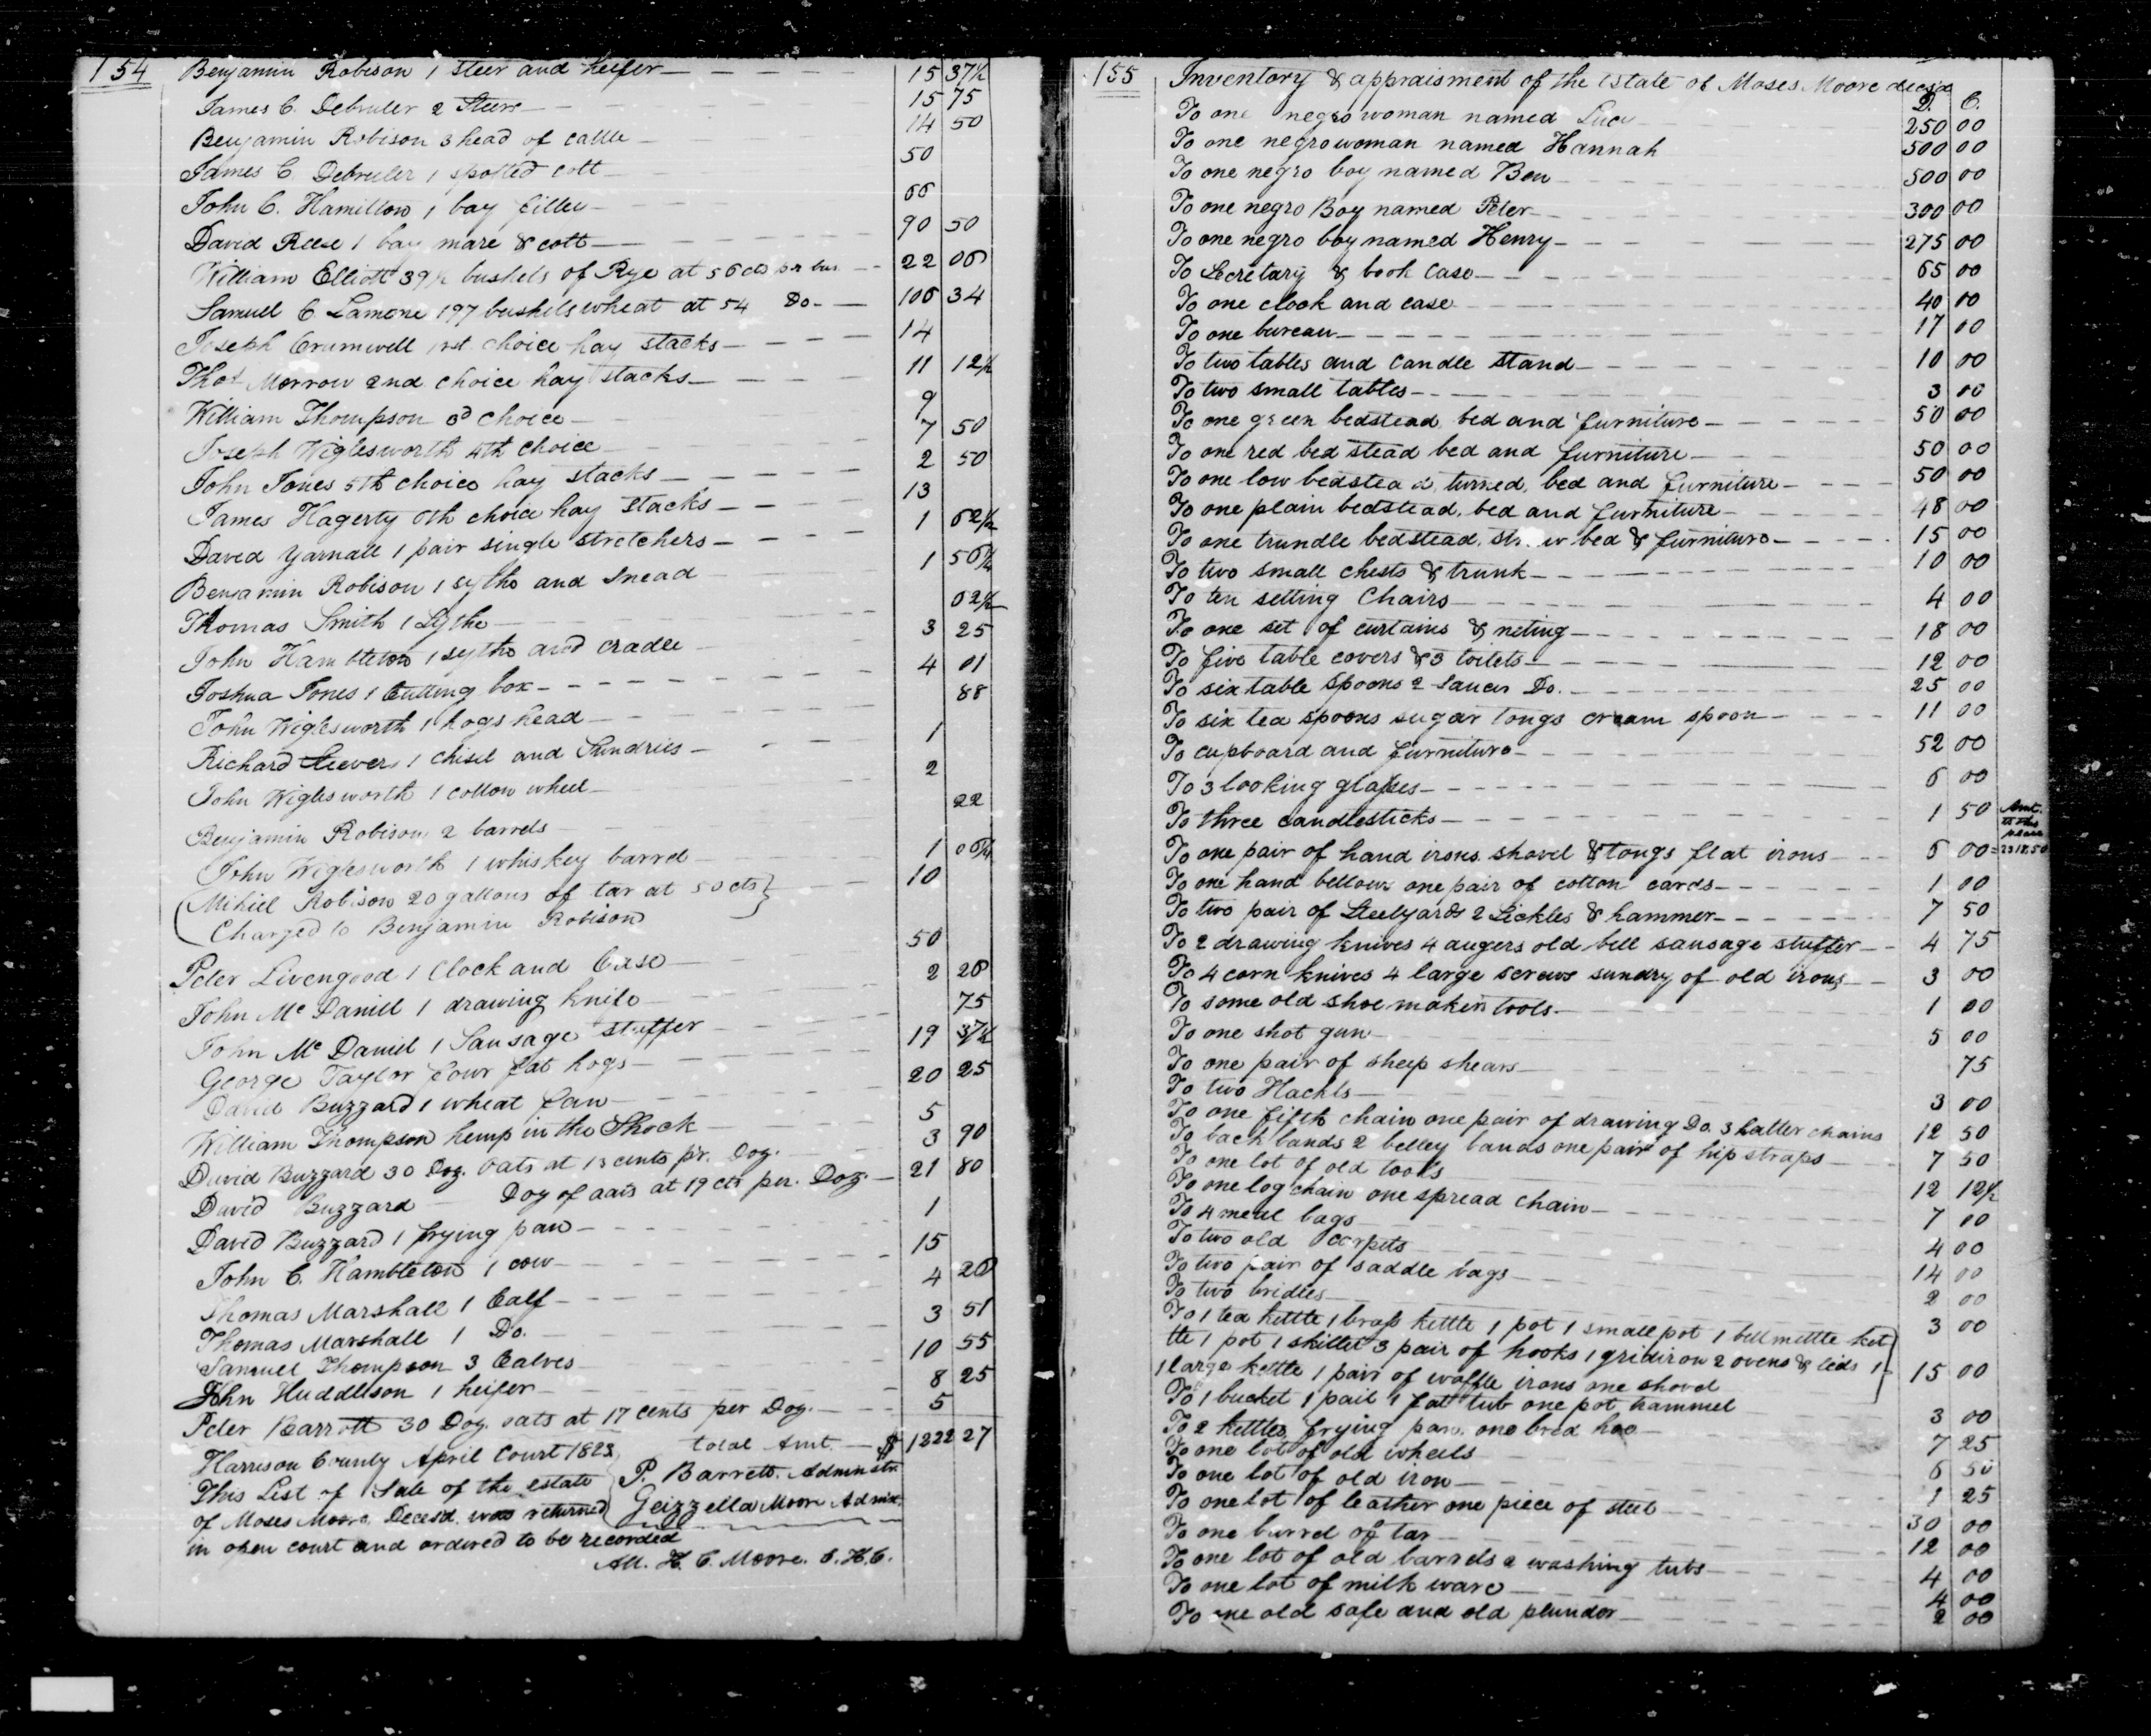 154
Benjamin Robison 1 steer and heifer 15 37½
James C. Debruler 2 Steers 15 75
Benjamin Robison 3 head of cattle 14 50
James C Debruler 1 spotted colt 50
John C. Hamilton 1 bay filley 66
David Reese 1 bay mare & colt 90 50
William Elliott 39½ bushels of Rye at 56 cts pr bus 22 06
Samuel C Lamone 197 bushels wheat at 54 Do. 106 34
Joseph Crumwell 1st choice hay stacks 14
Thos Morrow 2nd choice hay stacks 11 12½
William Thompson 3d choice 9
Joseph Wiglesworth 4th choice 7 50
John Jones 5th choice hay stacks 2 50
James Hagerty 6th choice hay stacks 13
David Yarnall 1 pair single stretchers 1 62½
Benjamin Robison 1 sythe and snead 1 56¼
Thomas Smith 1 Sythe 62½
John Hambleton 1 sythe and cradle 3 25
Joshua Jones 1 Cutting box 4 01
John Wiglesworth 1 hogshead 88
Richard Steevers 1 chisel and Sundries 1
John Wiglesworth 1 cotton wheel 2
Benjamin Robison 2 barrels 22
John Wiglesworth 1 whiskey barrel 1 06¼
Mihiel Robison 20 gallons of tar at 50 cts 10
Charged to Benjamin Robison
Peter Livengood 1 Clock and Case 50
John Mc Daniel 1 drawing knife 2 26
John Mc Daniel 1 Sausage stuffer 75
George Taylor four fat hogs 19 37½
David Buzzard 1 wheat fan 20 25
William Thompson hemp in the Shock 5
David Buzzard 30 Doz. Oats at 13 cents pr. Doz. 3 90
David Buzzard Doz of oats at 19 cts per. Doz. 21 80
David Buzzard 1 frying pan 1
John C. Hambleton 1 cow 15
Thomas Marshall 1 Calf 4 26
Thomas Marshall 1 Do. 3 51
Samuel Thompson 3 Calves 10 55
John Huddleson 1 heifer 8 25
Peter Barrott 30 Doz. oats at 17 cents per Doz. 5
total Amt. $ 1222 27
Harrison County April Court 1823
This List of Sale of the estate
of Moses Moore Decesd. was returned
in open court and ordered to be recorded
P. Barrett. Adminstr
Geizzella Moore Admix.
Att. H. C. Moore. C. H. C.
155
Inventory & appraisment of the estate of Moses Moore decsd
D. C.
To one negro woman named Lucy 250 00
To one negro woman named Hannah 500 00
To one negro boy named Ben 500 00
To one negro Boy named Peter 300 00
To one negro boy named Henry 275 00
To Secretary & book case 65 00
To one clock and case 40 00
To one bureau 17 00
To two tables and candle stand 10 00
To two small tables 3 00
To one green bedstead bed and furniture 50 00
To one red bed stead bed and furniture 50 00
To one low bedstead, turned, bed and furniture 50 00
To one plain bedstead, bed and furniture 48 00
To one trundle bedstead, straw bed & furniture 15 00
To two small chests & trunk 10 00
To ten setting Chairs 4 00
To one set of curtains & neting 18 00
To five table covers & 3 toilets 12 00
To six table spoons 2 saucer Do. 25 00
To six tea spoons sugar tongs cream spoon 11 00
To cupboard and furniture 52 00
To 3 looking glasses 6 00
To three candlesticks 1 50
Amt.
to this
place
2318.50
To one pair of hand irons shovel & tongs flat irons 6 00
To one hand bellows one pair of cotton cards 1 00
To two pair of Steelyards 2 Sickles & hammer 7 50
To 2 drawing knives 4 augers old bell sausage stuffer 4 75
To 4 corn knives 4 large screws sundry of old irons 3 00
To some old shoemakers tools 1 00
To one shot gun 5 00
To one pair of sheep shears 75
To two Hachls 3 00
To one fifth chain one pair of drawing Do. 3 halter chains 12 50
To back bands 2 belley bands one pair of hip straps 7 50
To one lot of old tools 12 12½
To one log chain one spread chain 7 00
To 4 meal bags 4 00
To two old carpets 14 00
To two pair of saddle bags 2 00
To two bridles 3 00
To 1 tea kettle 1 brass kettle 1 pot 1 small pot 1 bellmettle ket
tle 1 pot 1 skillet 3 pair of hooks 1 gridiron 2 ovens & leids 1
1 large kettle 1 pair of waffle irons one shovel 15 00
To 1 bucket 1 pail 1 fat tub one pot trammel 3 00
To 2 kettles frying pan one brod hoe 7 25
To one lot of old wheels 6 50
To one lot of old iron 1 25
To one lot of leather one piece of steel 30 00
To one barrel of tar 12 00
To one lot of old barrels 2 washing tubs 4 00
To one lot of milk ware 4 00
To one old safe and old plunder 2 00